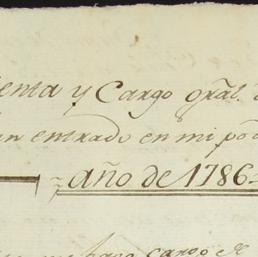 enta y Cargo gral.
an entrado en mi po
año de 1786
me hago cargo de